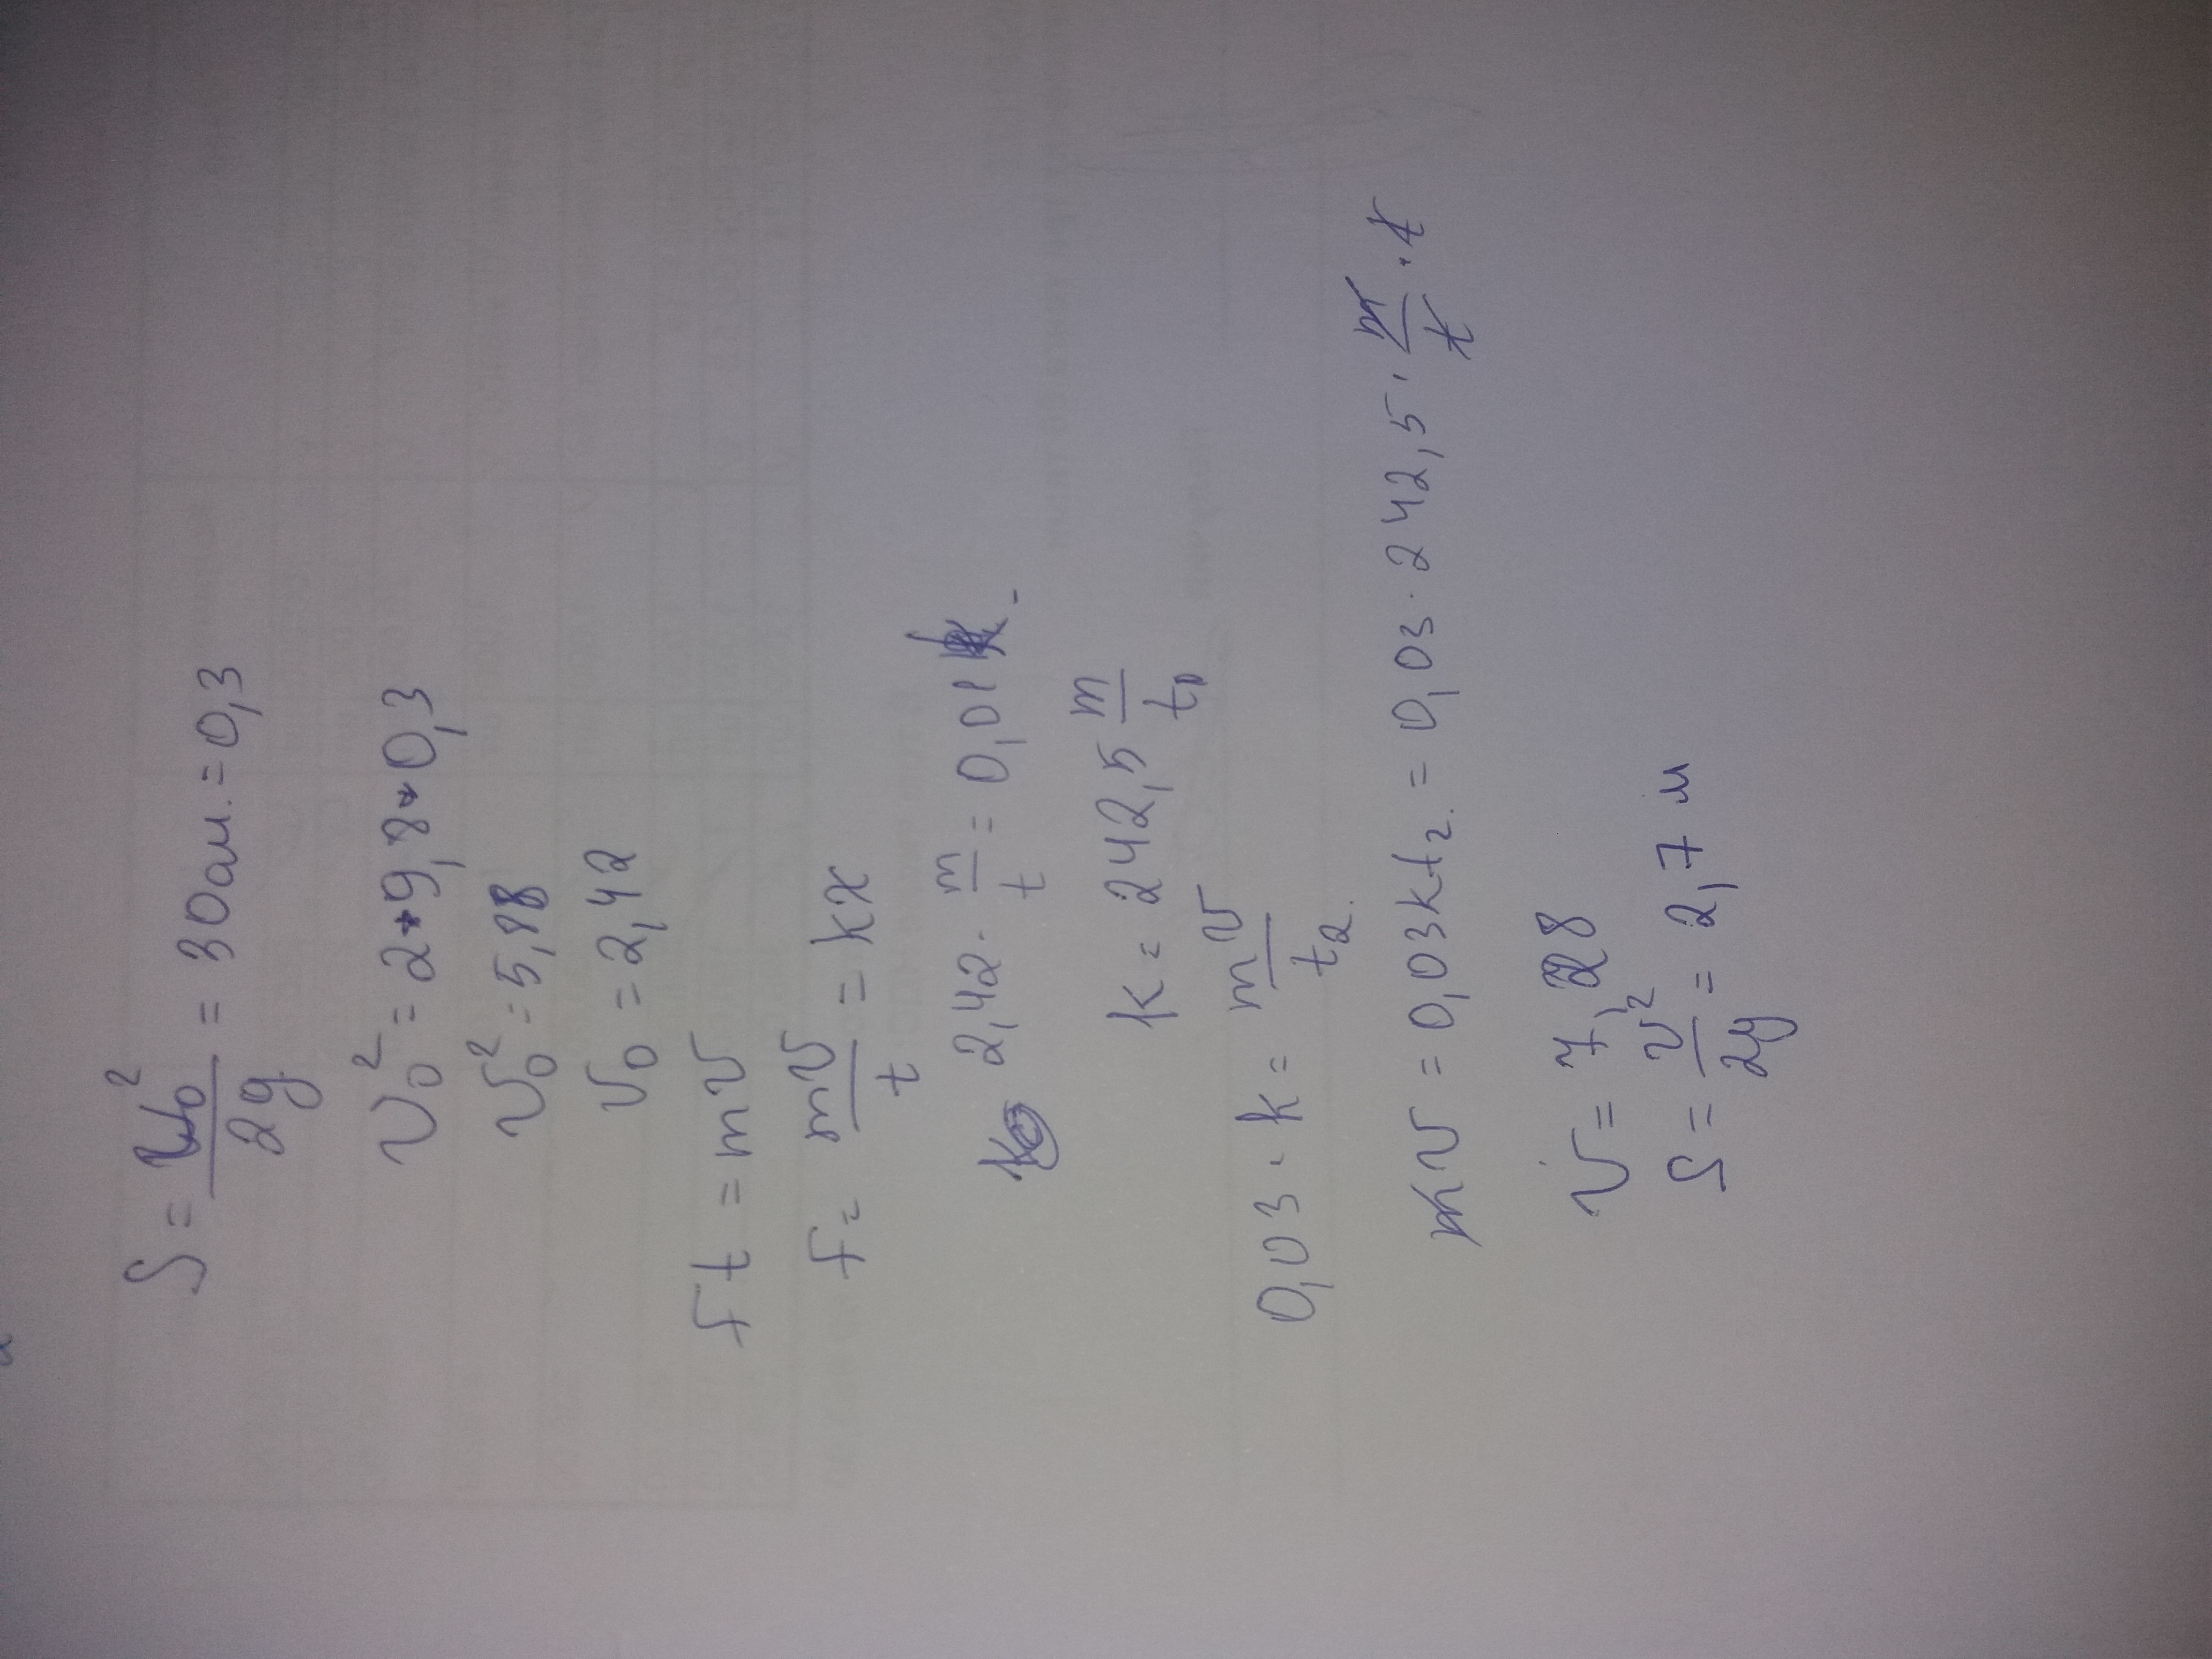 S = v₀²/2g = 30см. = 0,3
v₀² = 2*9,8*0,3
v₀² = 5,88
v₀ = 2,42
Ft = mv
F = mv/t = kx
2,42 · m/t = 0,01k
k = 242,5 m/t₁
0,03 · k = mv/t₂.
mv = 0,03kt₂. = 0,03 · 242,5 · m/t · t
v = 7,28
S = v²/2g = 2,7 м